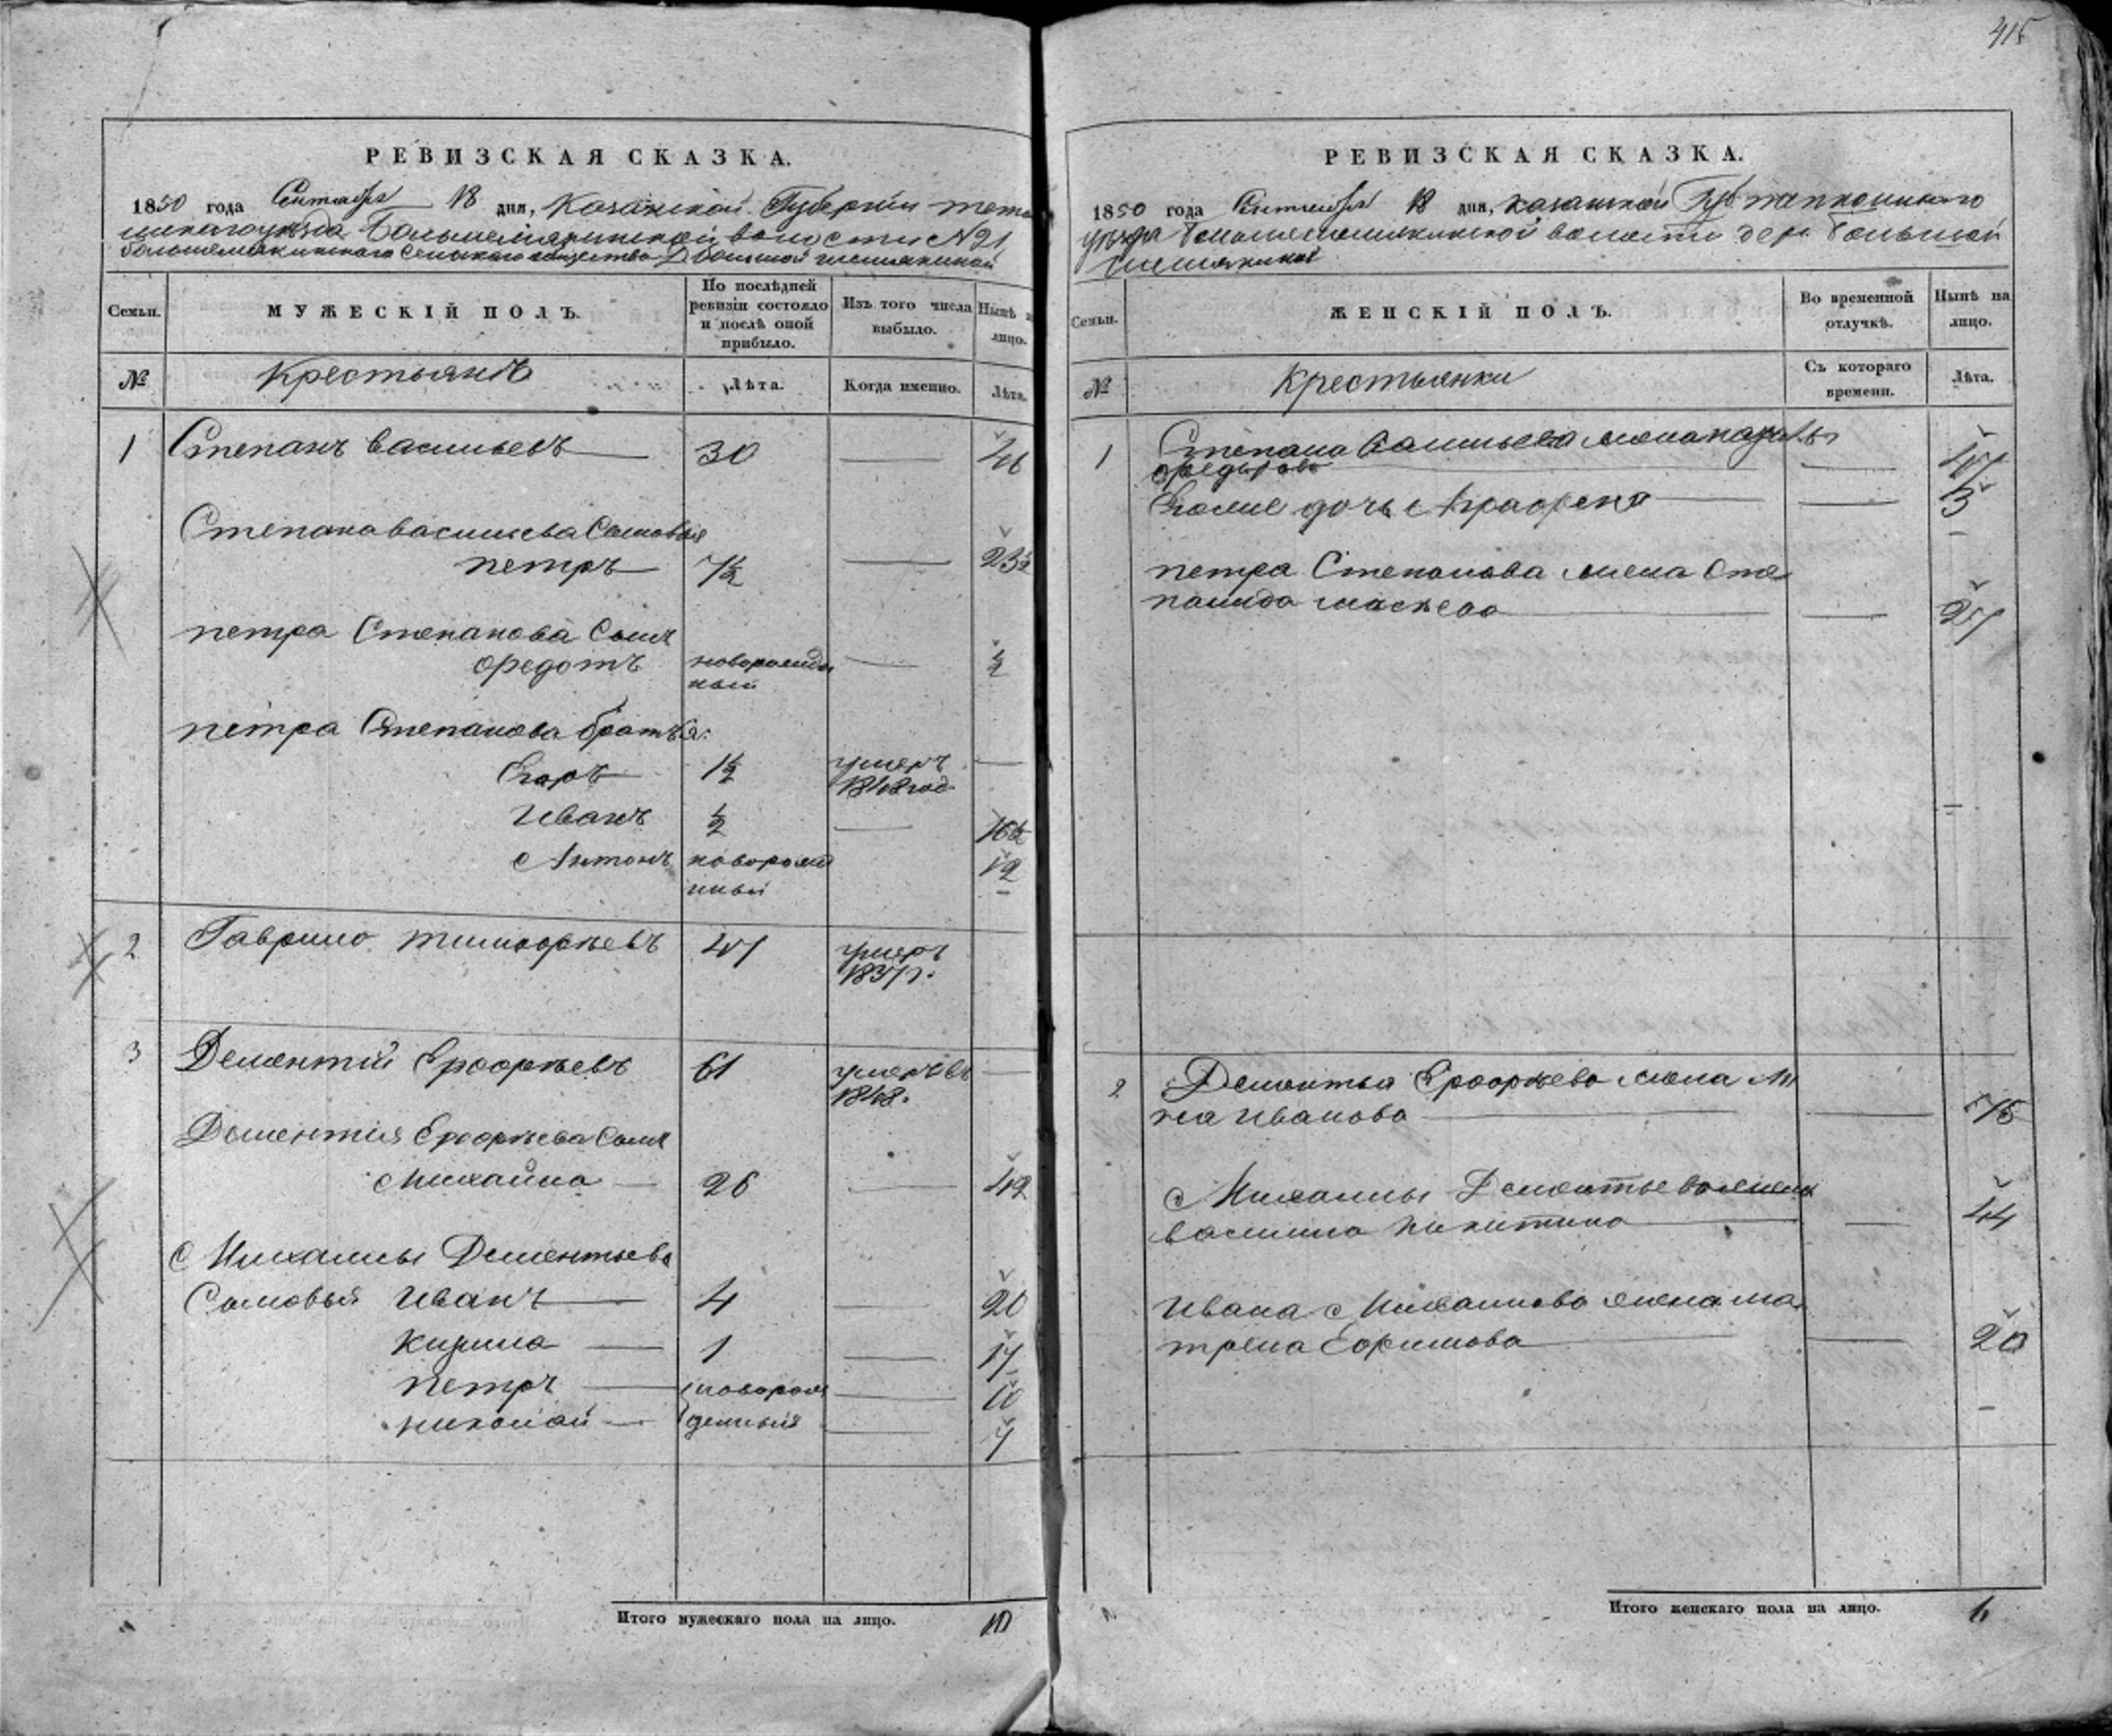 415
РЕВИЗСКАЯ СКАЗКА.
1850 года Сентября 18 дня, Казанской Губернии тетю
шскаго уѣзда волости №21
Сельскаго общества Д Большой
Семьи.
МУЖЕСКІЙ ПОЛЪ.
По послѣдней ревизіи состояло и послѣ оной прибыло.
Изъ того числа выбыло.
Нынѣ н лицо.
№
Крестьянѣ
Лѣта.
Когда именно.
Лѣта.
1 Степанъ Васильевъ 30 46
Степана васильева Сыновья
петръ 7½ 23½
петра Степанова Сынъ
Ѳедотъ новорожден ½
ный
петра Степанова братья:
Егоръ 1½ умеръ
1848 год
Иванъ ½ 16½
Антонъ новорожд 12
нный
2 Гаврило тимофѣевъ 41 умеръ
1837 г.
3 Дементій Ерофѣевъ 61 умеръ въ
1848.
Дементия Ерофѣева Сынъ
Михайла 26 42
Михаилы Дементьева
Сыновья Иванъ 4 20
Кирила 1 17
петръ новорож 10
николай денныя 7
Итого мужескаго пола на лицо. 10
РЕВИЗСКАЯ СКАЗКА.
1850 года Сентября 18 дня, казанской Губ
уѣзда волости дер. Большой
Семьи.
ЖЕНСКІЙ ПОЛЪ.
Во временной отлучкѣ.
Нынѣ на лицо.
№
Крестьянки
Съ котораго времени.
Лѣта.
1 Степана Васильева жена
Ѳедорова
дочь Аграфена 3
петра Степанова жена Сте
панида
2 Дементья Ерофѣева жена
Иванова
Михаилы Дементьева жена
василиса никитина 44
Ивана Михаилова жена ма
трена Ефимова 20
Итого женскаго пола на лицо. 6